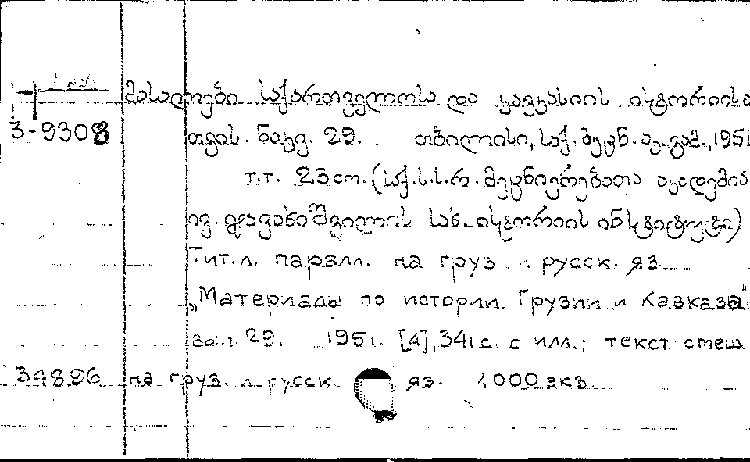 მასალები საქართველოსა და კავკასიის ისტორიისა
3-9308 თვის. ნაკვ. 29. თბილისი, საქ. მეცნ. აკ. გამ., 1951
т.т. 23 cm. (საქ.ს.ს.რ. მეცნიერებათა აკადემია
ივ. ჯავახიშვილის სახ. ისტორიის ინსტიტუტი)
Тит. л. паралл. на груз. и русск. яз.
„Материалы по истории Грузии и Кавказа"
вып. 29. 1951. [4], 341 с. с илл.; текст смеш.
34896 на груз. и русск. яз. 1.000 экз.